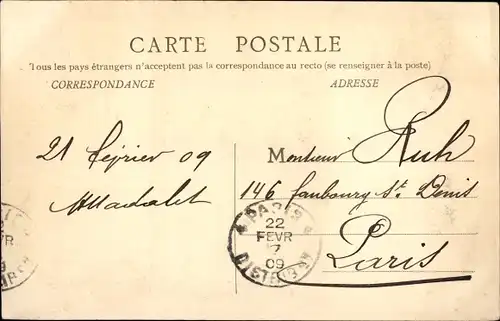 CARTE POSTALE
Tous les pays étrangers n'acceptent pas la correspondance au recto (se renseigner à la poste)
CORRESPONDANCE
ADRESSE
21 février 09
Monsieur Ruh
146 faubourg St Denis
Paris
PARIS
22
FEVR
7
09
DISTRIB